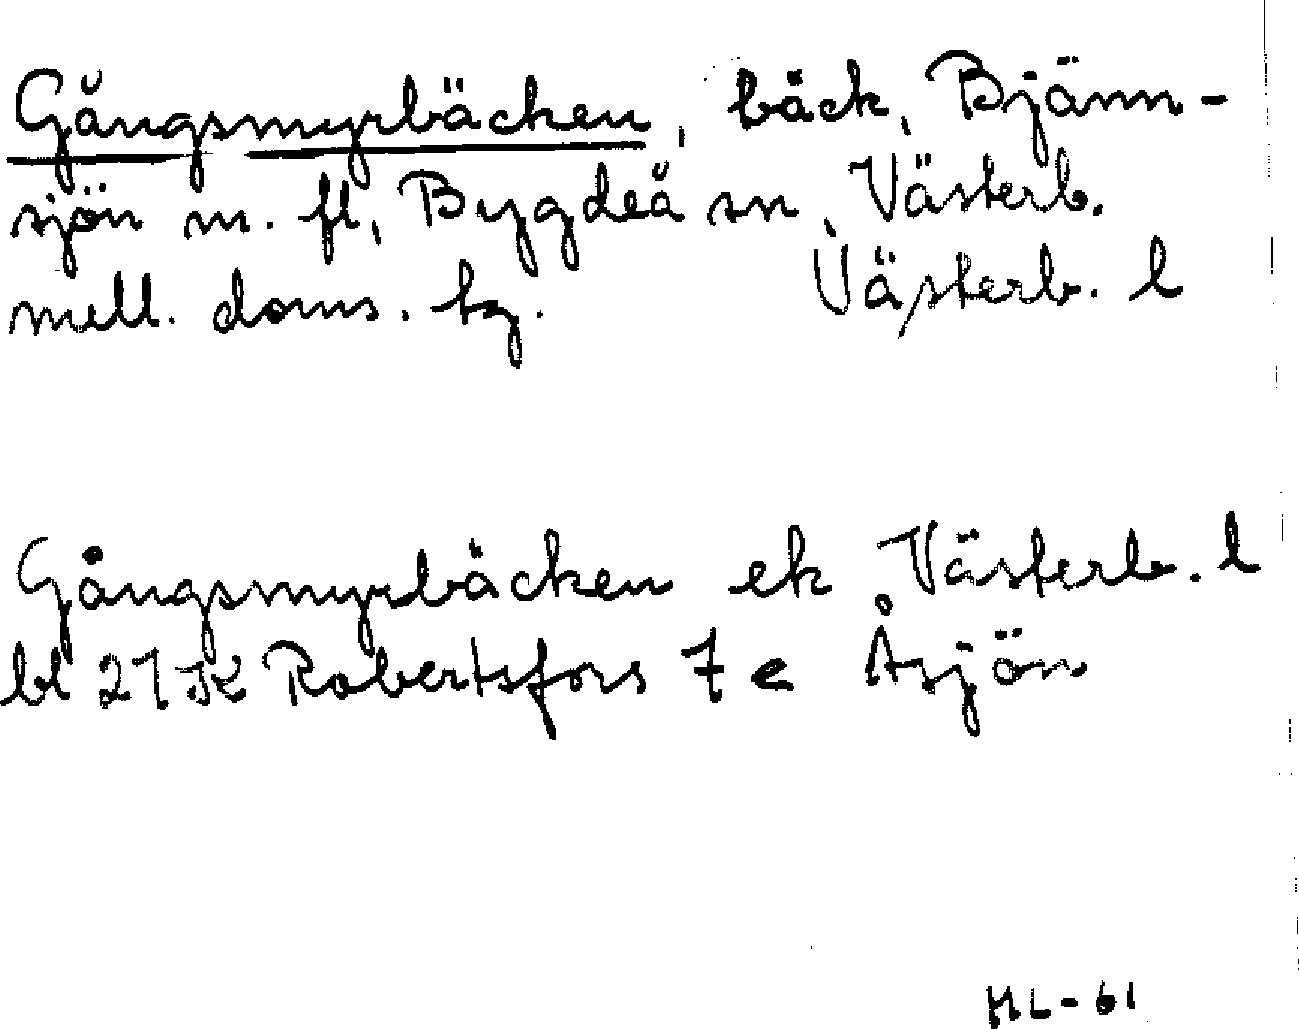 Gångsmyrbäcken, bäck, Bjänn-
sjön m. fl, Bygdeå sn, Västerb.
mell. doms. tg. Västerb. l
Gångsmyrbäcken ek Västerb. l
bl 21 K Robertsfors 7 e Åsjön
HL-61